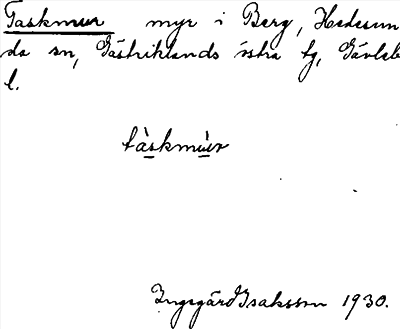 Taskmur myr i Berg, Hedesun
da sn, Gästriklands östra tg, Gävleb
l.
tàskmùr
Ingegärd Isaksson 1930.